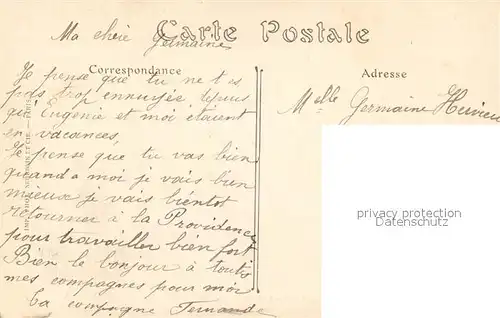 Carte Postale
Ma chère Germaine
Correspondance
Adresse
Je pense que tu ne t es
pas trop ennuyée depuis
qu Eugenie et moi étaient
en vacances,
Je pense que tu vas bien
quand a moi je vais bien
mieux je vais bientot
retourner à la Providence
pour travailler bien fort
Bien le bonjour à toutes
mes compagnes pour moi
Ta compagne Fernande
Melle Germaine
privacy protection
Datenschutz